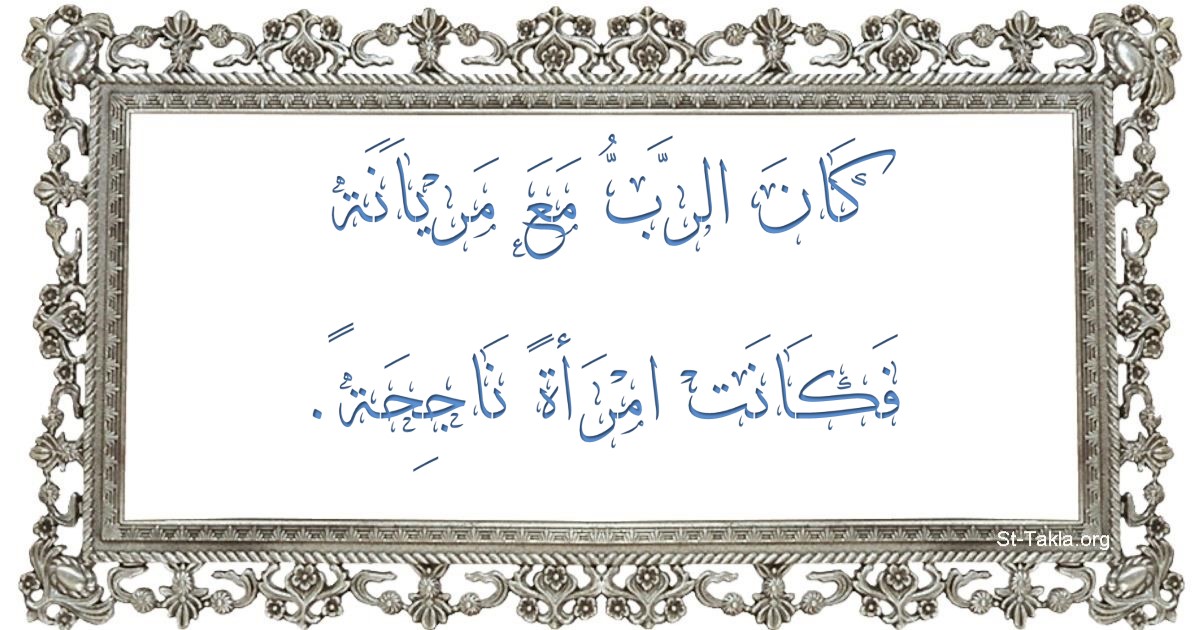 كَانَ الرَّبُّ مَعَ مَريَانَة
فَكَانَتْ امْرَأَةً نَاجِحَةً.
St-Takla.org